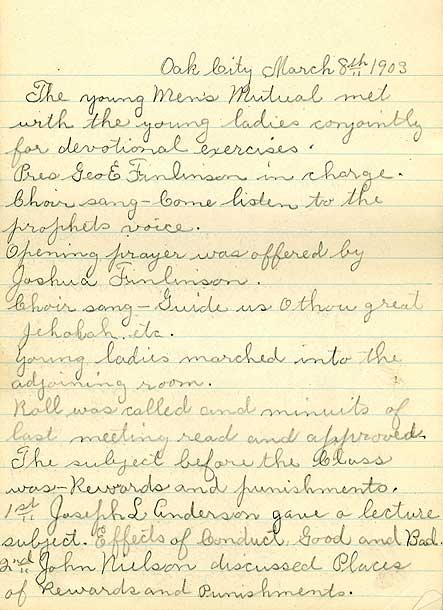 Oak City March 8th 1903
The young Men's Mutual met
with the young ladies conjointly
for devotional exercises.
Pres Geo E Finlinson in charge.
Choir sang - Come listen to the
prophets voice.
Opening prayer was offered by
Joshua Finlinson.
Choir sang - Guide us O thou great
Jehobah. etc.
Young ladies marched into the
adjoining room.
Roll was called and minuits of
last meeting read and approved.
The subject before the Class
was - Rewards and punishments.
1st Joseph L Anderson gave a lecture
subject. Effects of Conduct Good and Bad.
2nd John Nielson discussed Places
of Rewards and Punishments.